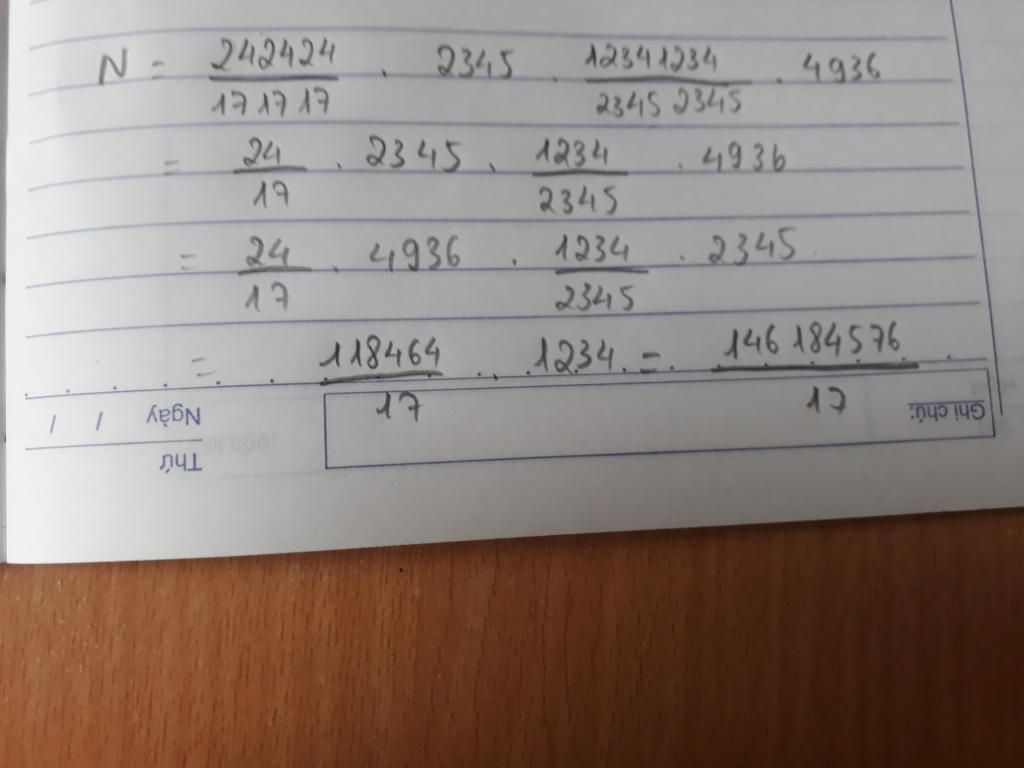 N = 242424/171717 . 2345 . 12341234/23452345 . 4936
= 24/17 . 2345 . 1234/2345 . 4936
= 24/17 . 4936 . 1234/2345 . 2345
= 118464/17 . 1234 = 146184576/17
Ghi chú:
Ngày / /
Thứ